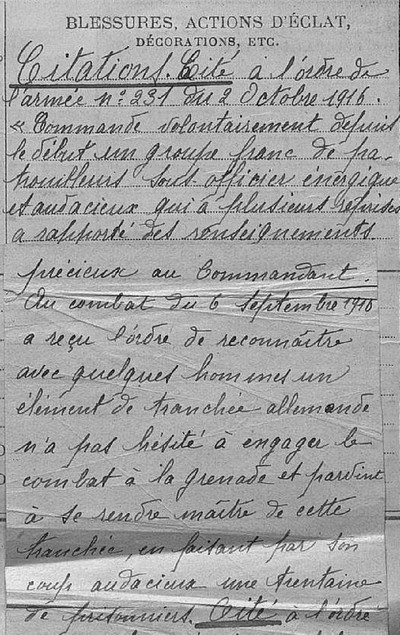 BLESSURES, ACTIONS D'ÉCLAT,
DÉCORATIONS, ETC.
Citations. Cité à l'ordre de
l'armée n° 231 du 2 Octobre 1916.
« Commande volontairement depuis
le début un groupe franc de pa-
trouilleurs sous officier énergique
et audacieux qui à plusieurs reprises
a rapporté des renseignements
précieux au Commandant.
Au combat du 6 septembre 1916
a reçu l'ordre de reconnaître
avec quelques hommes un
élément de tranchée allemande
n'a pas hésité à engager le
combat à la grenade et parvint
à se rendre maître de cette
tranchée, en faisant par son
coup audacieux une trentaine
de prisonniers. Cité à l'ordre